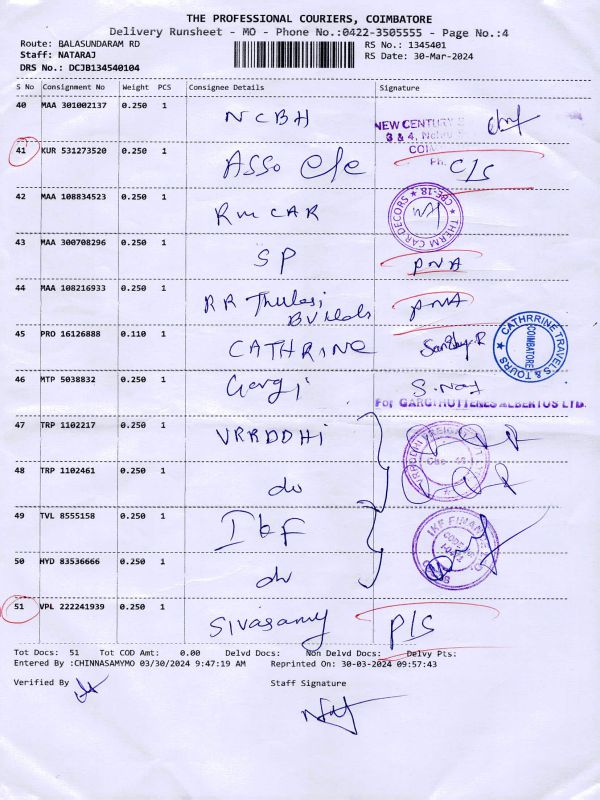 THE PROFESSIONAL COURIERS, COIMBATORE
Delivery Runsheet - MO - Phone No.:0422-3505555 - Page No.:4
Route: BALASUNDARAM RD
RS No.: 1345401
Staff: NATARAJ
RS Date: 30-Mar-2024
DRS No.: DCJB134540104
S No Consignment No Weight PCS Consignee Details Signature
40 MAA 301002137 0.250 1 NCBH
NEW CENTURY
3 & 4,
41 KUR 531273520 0.250 1 ASSO C/S
Ph.
42 MAA 108834523 0.250 1 Rm CAR
THERM CAR DECORS ★ CBE-18 ★
43 MAA 300708296 0.250 1 SP PNA
44 MAA 108216933 0.250 1 RR Thulasi PNA
45 PRO 16126888 0.110 1 CATHRINE
CATHRRINE TRAVELS & TOURS ★ COIMBATORE
46 MTP 5038832 0.250 1 Gargi
For GARGI HUTTENES ALBERTUS LTD.
47 TRP 1102217 0.250 1 VRRDDHI
48 TRP 1102461 0.250 1 do
49 TVL 8555158 0.250 1 Ikf
IKF FINANCE
50 HYD 83536666 0.250 1 do
51 VPL 222241939 0.250 1 Sivasamy P/S
Tot Docs: 51 Tot COD Amt: 0.00 Delvd Docs: Non Delvd Docs: Delvy Pts:
Entered By :CHINNASAMYMO 03/30/2024 9:47:19 AM Reprinted On: 30-03-2024 09:57:43
Verified By
Staff Signature